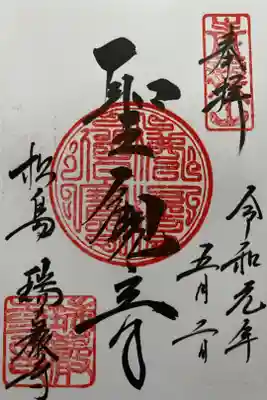 奉拝
令和元年
五月二日
聖観世音
松島 瑞巌寺